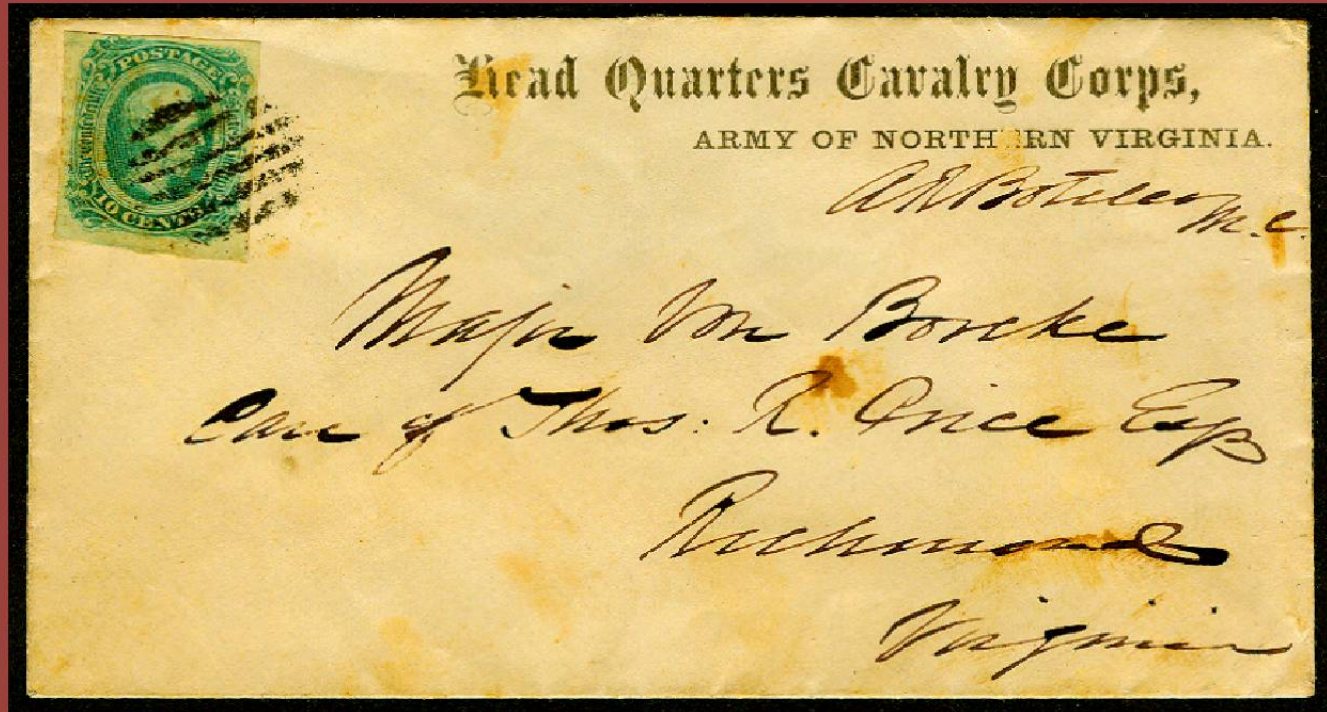 POSTAGE
Confederate States of America
10 CENTS
Head Quarters Cavalry Corps,
ARMY OF NORTH RN VIRGINIA.
A R Boteler
M.C.
Major Von Borcke
Care of Thos. R. Price Esq
Richmond
Virginia